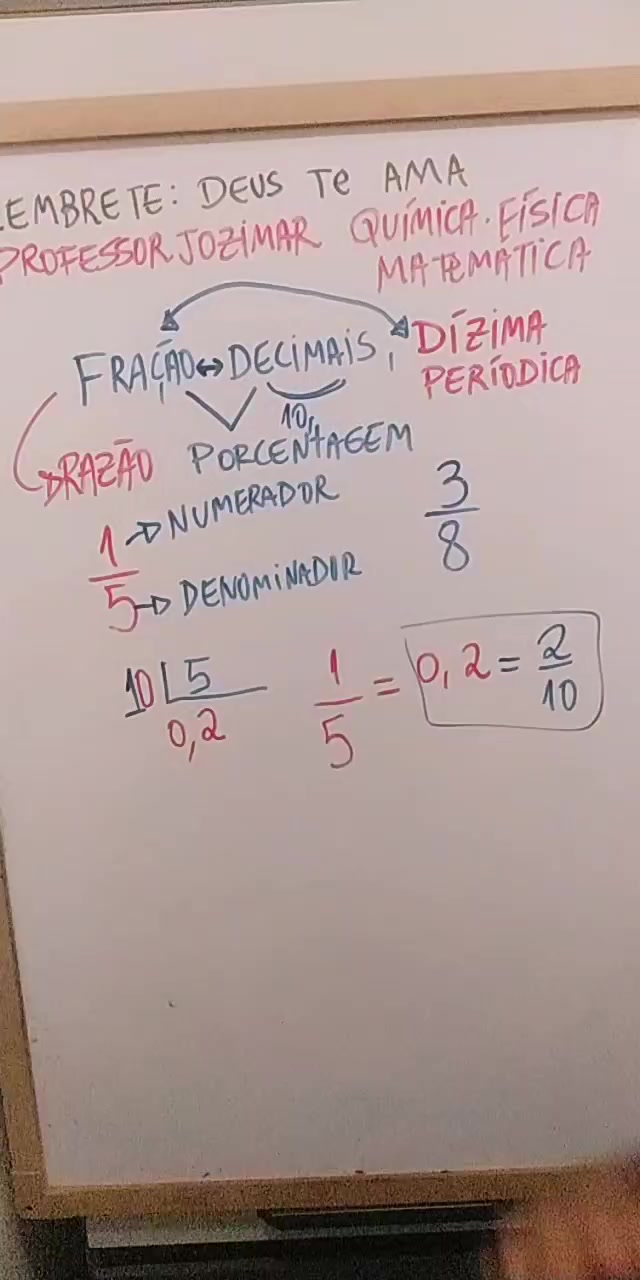 LEMBRETE: DEUS TE AMA
PROFESSOR JOZIMAR QUÍMICA. FÍSICA
MATEMÁTICA
FRAÇÃO ↔ DECIMAIS, DÍZIMA
PERÍODICA
10,
RAZÃO PORCENTAGEM
1/5 → NUMERADOR
→ DENOMINADOR
3/8
10 | 5
0,2
1/5 = 0,2 = 2/10